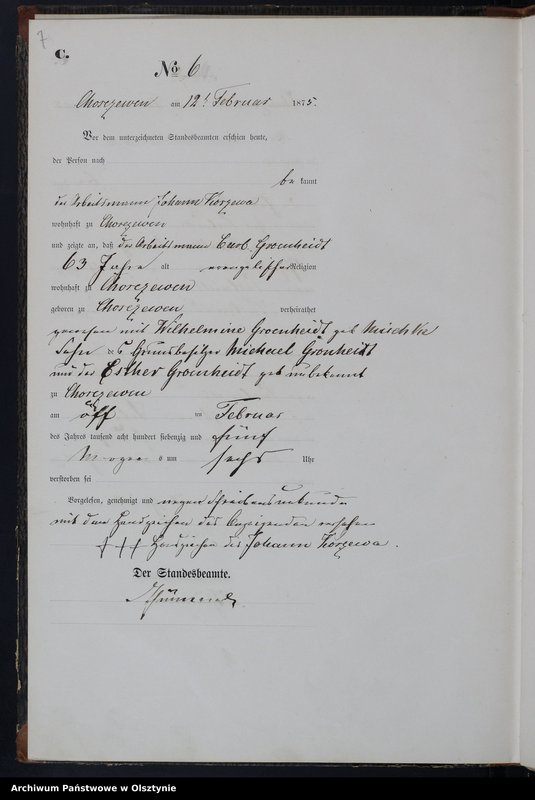 7
C.
No 6
Chorczewen am 12t Februar 1875.
Vor dem unterzeichneten Standesbeamten erschien heute,
der Person nach
be kannt
der Arbeitsmann Johann Korzewa
wohnhaft zu Chorczewen
und zeigte an, daß der Arbeitsmann Carl Groenheidt
63 Jahre alt evangelischer Religion
wohnhaft zu Chorczewen
geboren zu Chorczewen verheirathet
gewesen mit Wilhelmine Groenheidt geb Mischke
Sohn des Grundbesitzer Michael Gronheidt
und der Esther Groenheidt geb unbekannt
zu Chorczewen
am elf ten Februar
des Jahres tausend acht hundert siebenzig und fünf
Morgens um sechs Uhr
verstorben sei
Vorgelesen, genehmigt und wegen Schreibensunkunde
mit dem Handzeichen des Anzeigenden versehen
+++ Handzeichen des Johann Korzewa.
Der Standesbeamte.
Archiwum Państwowe w Olsztynie